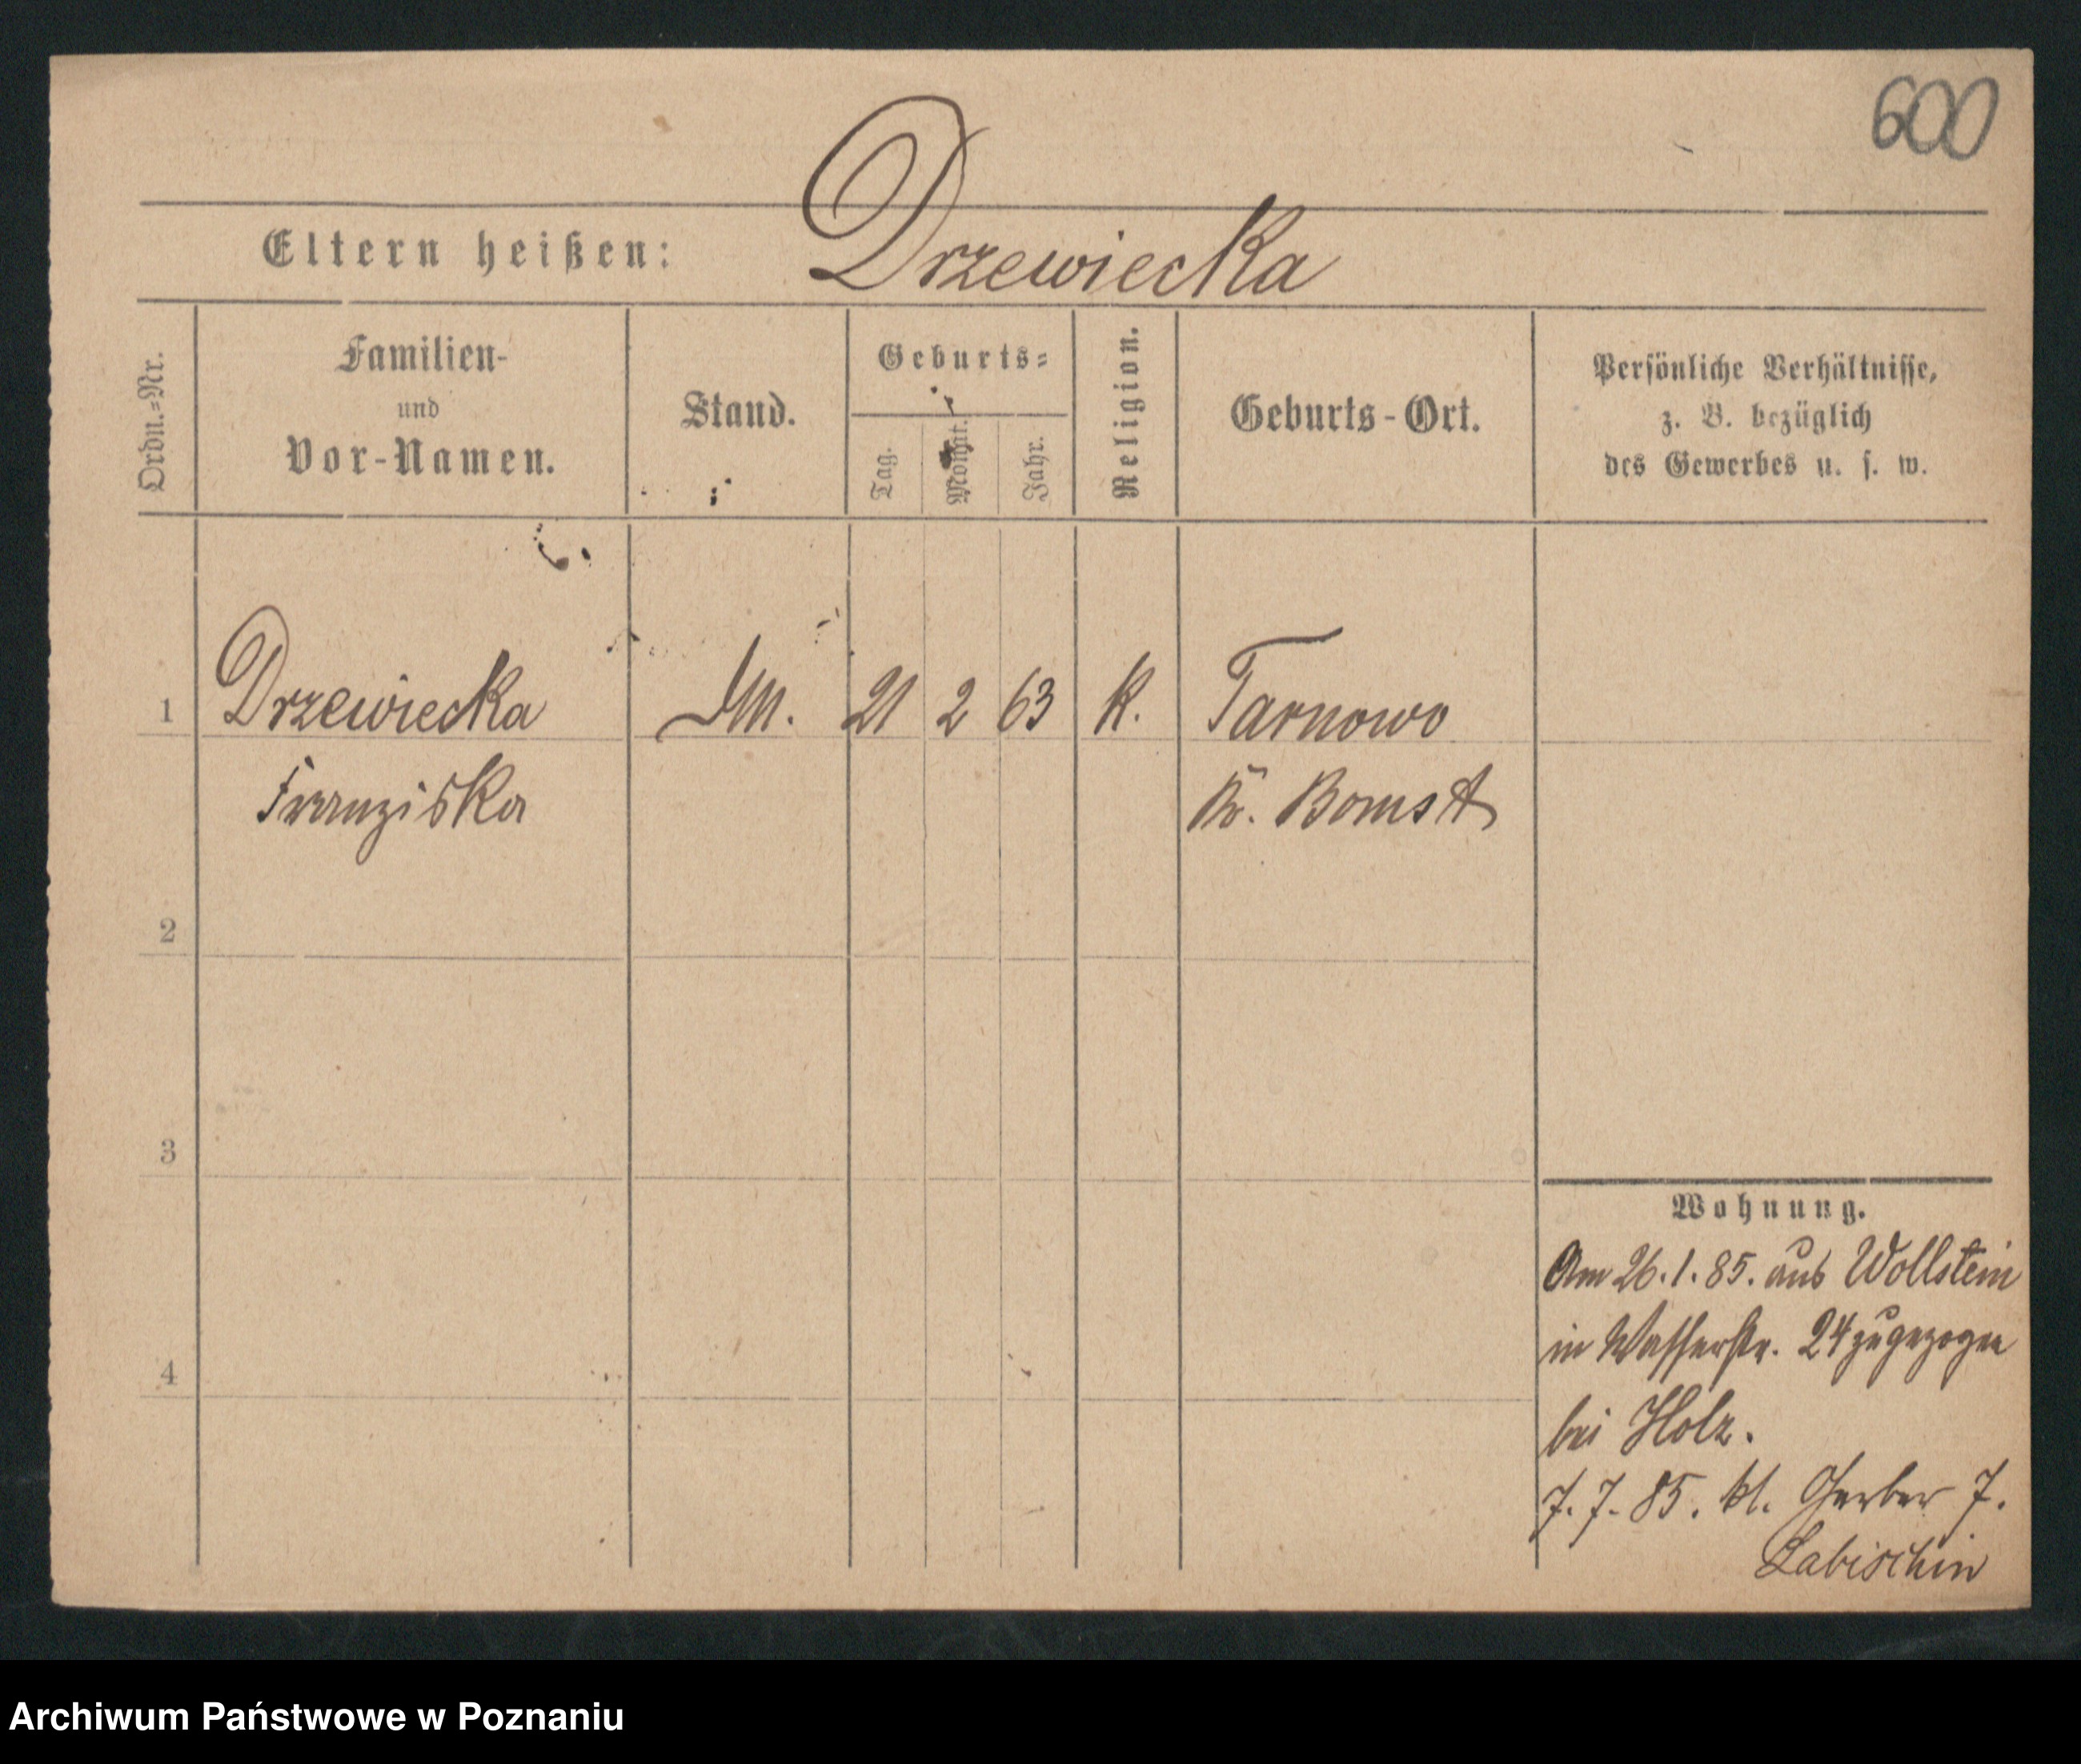 600
Eltern heißen: Drzewiecka
Ordn.=Nr.
Familien-
und
Vor-Namen.
Stand.
Geburts=
Tag.
Monat.
Jahr.
Religion.
Geburts-Ort.
Persönliche Verhältnisse,
z. B. bezüglich
des Gewerbes u. s. w.
1 Drzewiecka 21 2 63 k. Tarnowo
Franziska Kr. Bomst
2
3
4
Wohnung.
Am 26.1.85. aus Wollstein
in Wasserstr. 24 zugezogen
bei Holz.
7.7.85. kl. Gerber 7.
Labischin
Archiwum Państwowe w Poznaniu